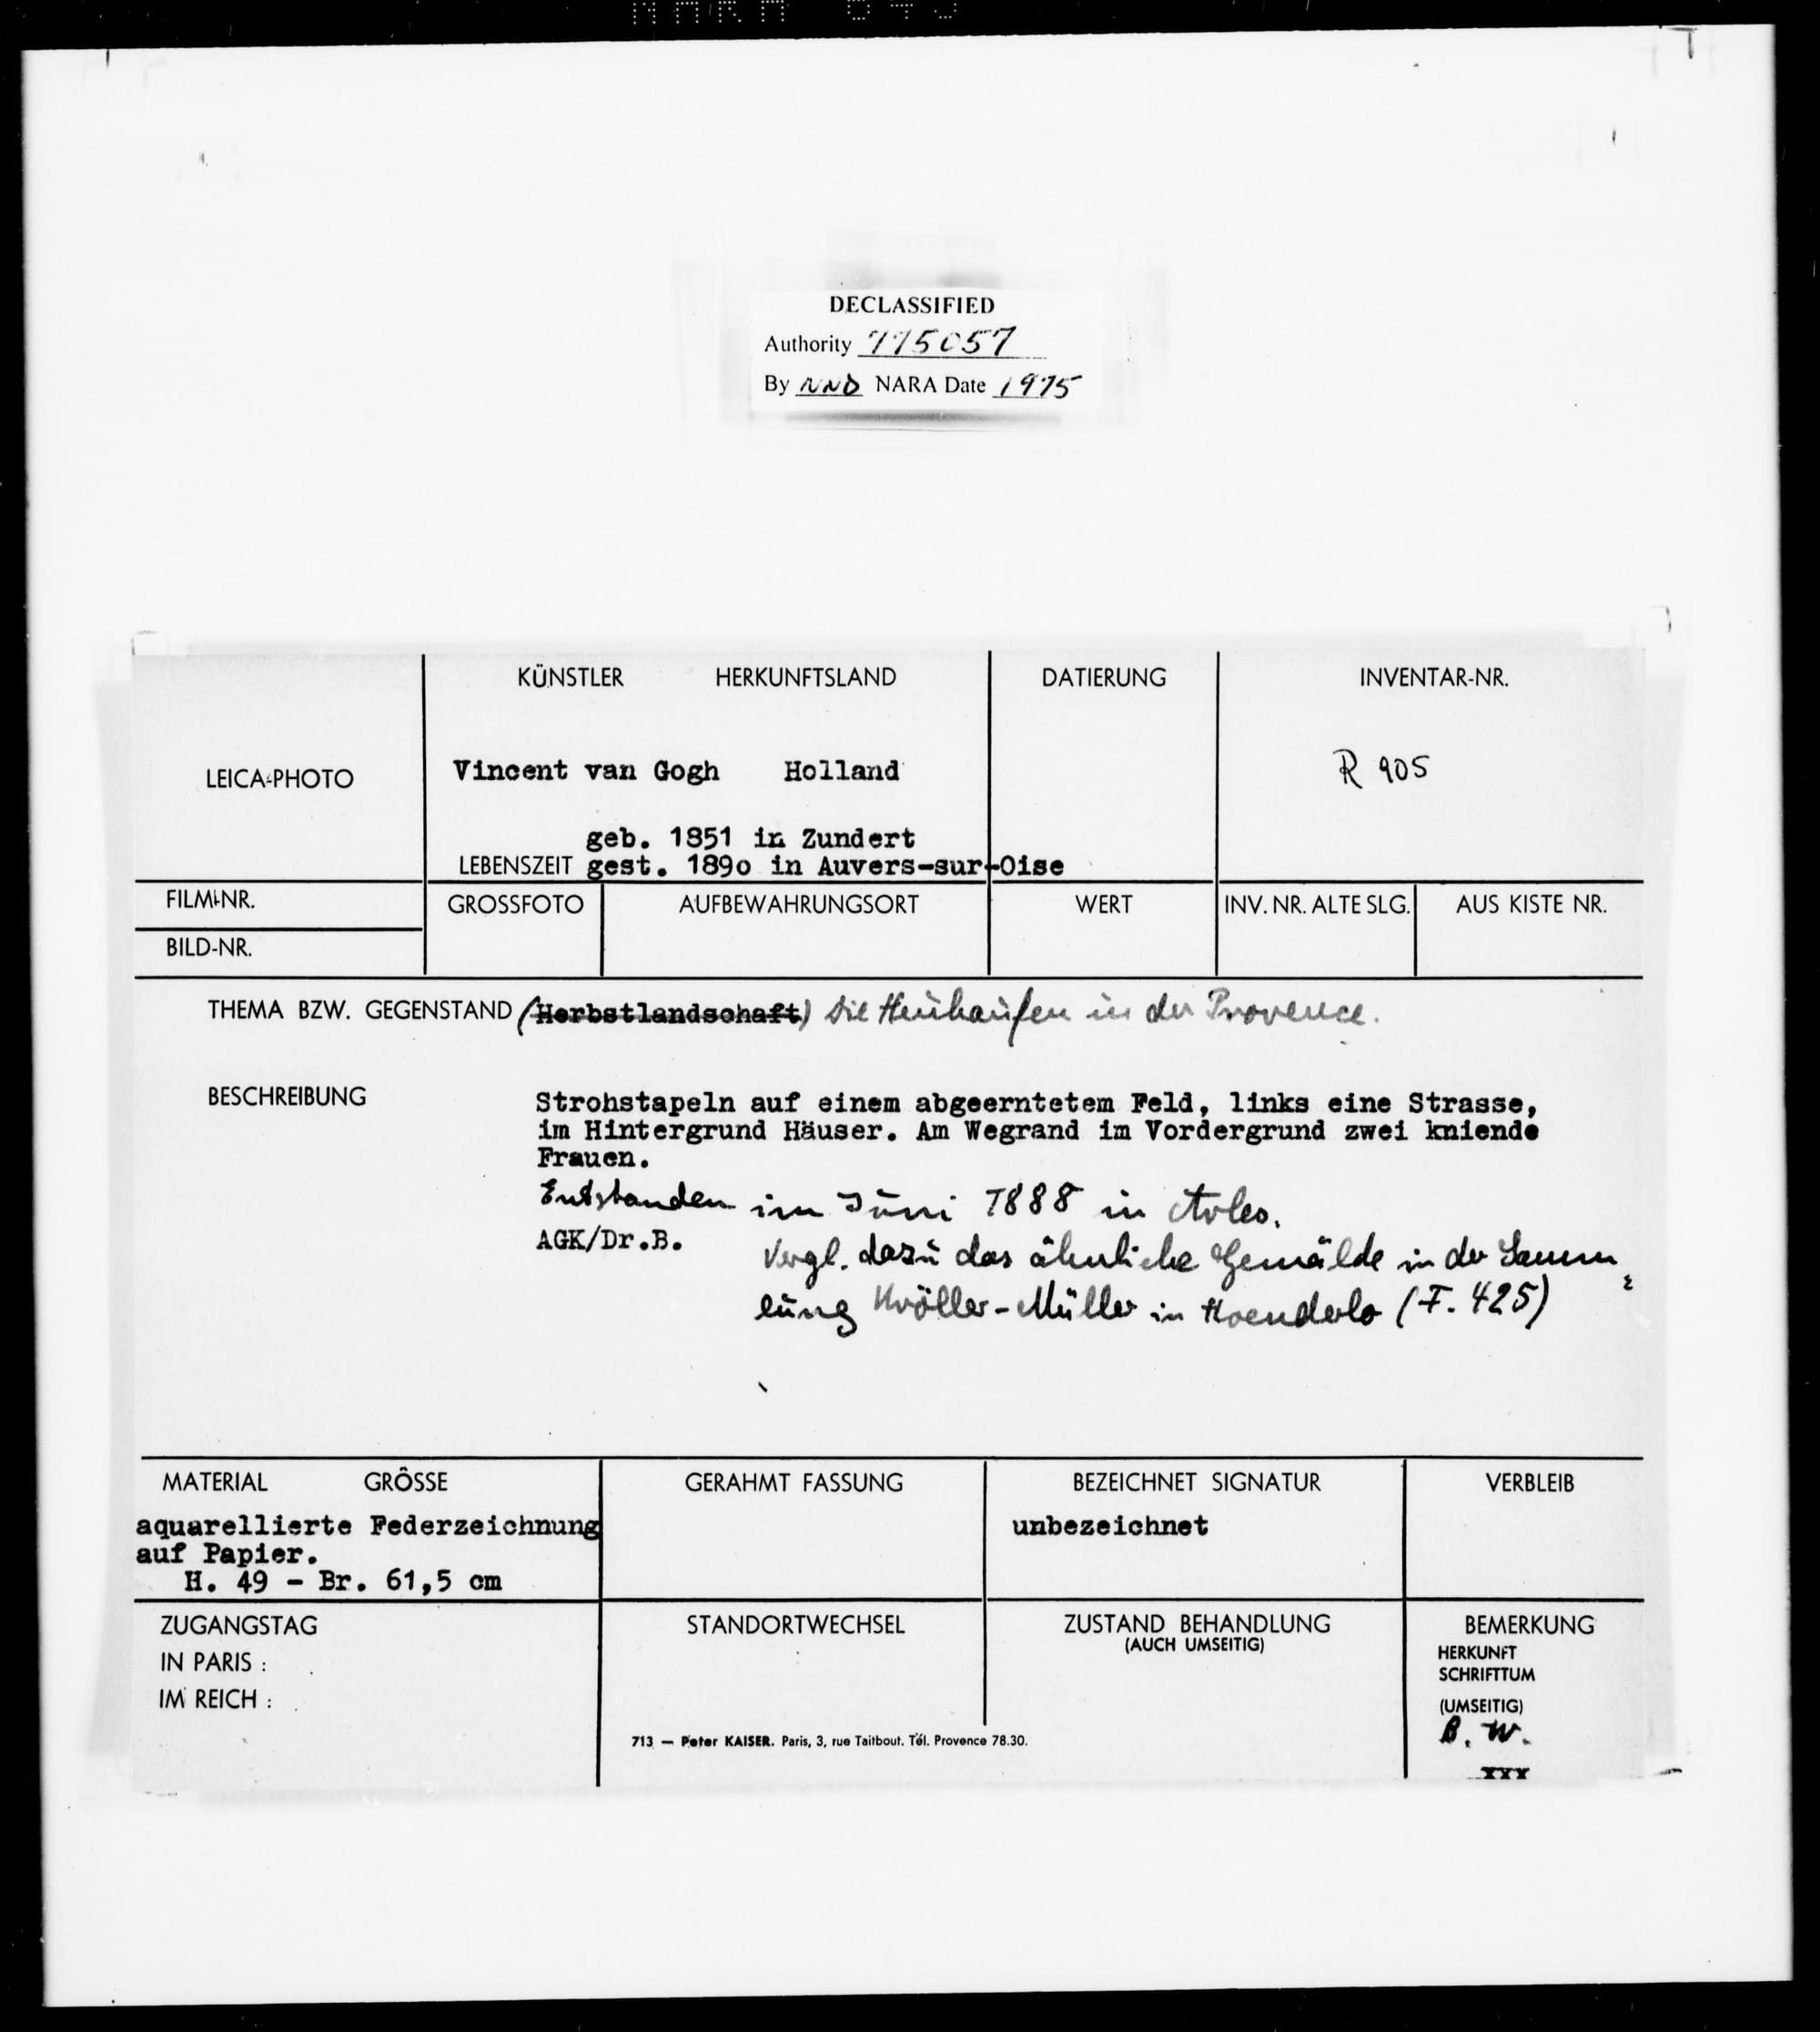 DECLASSIFIED
Authority 775057
By NND NARA Date 1975
KÜNSTLER HERKUNFTSLAND DATIERUNG INVENTAR-NR.
LEICA-PHOTO Vincent van Gogh Holland R 905
geb. 1851 in Zundert
LEBENSZEIT gest. 189o in Auvers-sur-Oise
FILM-NR. GROSSFOTO AUFBEWAHRUNGSORT WERT INV. NR. ALTE SLG. AUS KISTE NR.
BILD-NR.
THEMA BZW. GEGENSTAND (Herbstlandschaft) Die Heuhaufen in der Provence.
BESCHREIBUNG Strohstapeln auf einem abgeerntetem Feld, links eine Strasse,
im Hintergrund Häuser. Am Wegrand im Vordergrund zwei kniende
Frauen.
Entstanden im Juni 1888 in Arles.
AGK/Dr.B. Vergl. dazu das ähnliche Gemälde in der Samm
lung Kröller-Müller in Hoenderlo (F. 425)
MATERIAL GRÖSSE GERAHMT FASSUNG BEZEICHNET SIGNATUR VERBLEIB
aquarellierte Federzeichnung unbezeichnet
auf Papier.
H. 49 - Br. 61,5 cm
ZUGANGSTAG STANDORTWECHSEL ZUSTAND BEHANDLUNG BEMERKUNG
(AUCH UMSEITIG) HERKUNFT
IN PARIS : SCHRIFTTUM
IM REICH : (UMSEITIG)
B. W.
713 — Peter KAISER. Paris, 3, rue Taitbout. Tél. Provence 78.30.
XXX